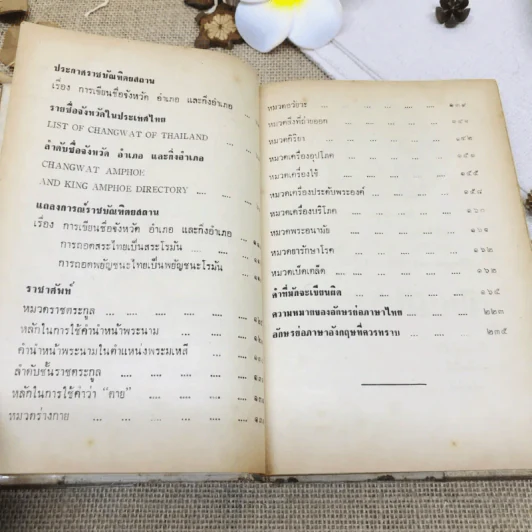 ประกาศราชบัณฑิตยสถาน
เรื่อง การเขียนชื่อจังหวัด อำเภอ และกิ่งอำเภอ
รายชื่อจังหวัดในประเทศไทย
LIST OF CHANGWAT OF THAILAND
ลำดับชื่อจังหวัด อำเภอ และกิ่งอำเภอ
CHANGWAT AMPHOE
AND KING AMPHOE DIRECTORY
แถลงการณ์ราชบัณฑิตยสถาน
เรื่อง การเขียนชื่อจังหวัด อำเภอ และกิ่งอำเภอ
การถอดสระไทยเป็นสระโรมัน
การถอดพยัญชนะไทยเป็นพยัญชนะโรมัน
ราชาศัพท์
หมวดราชตระกูล
หลักในการใช้คำนำหน้าพระนาม
คำนำหน้าพระนามในตำแหน่งพระมเหสี
ลำดับชั้นราชตระกูล
หลักในการใช้คำว่า “ตาย”
หมวดร่างกาย
หมวดอวัยวะ
หมวดสิ่งที่ถ่ายออก
หมวดกิริยา
หมวดเครื่องอุปโภค
หมวดเครื่องใช้ ๑๕๕
หมวดเครื่องประดับพระองค์ ๑๕๘
หมวดเครื่องบริโภค ๑๖๐
หมวดพระอนามัย ๑๖๑
หมวดยารักษาโรค ๑๖๒
หมวดเบ็ดเตล็ด ๑๖๓
คำที่มักจะเขียนผิด ๑๖๕
ความหมายของอักษรย่อภาษาไทย ๒๒๓
อักษรย่อภาษาอังกฤษที่ควรทราบ ๒๓๕